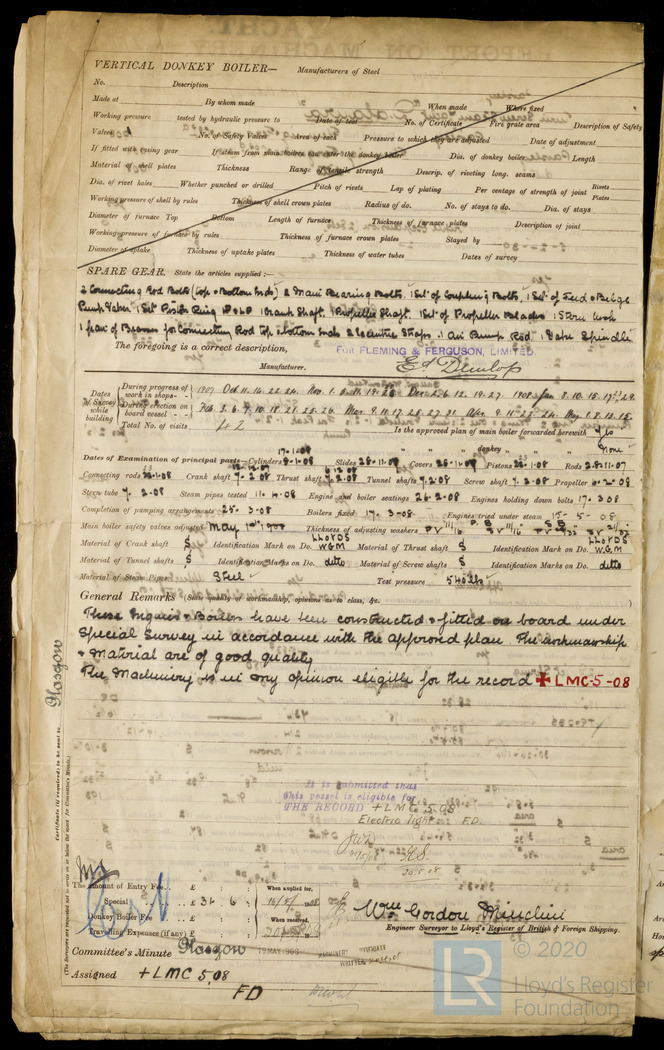 VERTICAL DONKEY BOILER— Manufacturers of Steel
No. Description
Made at By whom made When made Where fixed
Working pressure tested by hydraulic pressure to Date of test No. of Certificate Fire grate area Description of Safety
Valves No. of Safety Valves Area of each Pressure to which they are adjusted Date of adjustment
If fitted with easing gear If steam from main boilers can enter the donkey boiler Dia. of donkey boiler Length
Material of shell plates Thickness Range of tensile strength Descrip. of riveting long. seams
Dia. of rivet holes Whether punched or drilled Pitch of rivets Lap of plating Per centage of strength of joint Rivets Plates
Working pressure of shell by rules Thickness of shell crown plates Radius of do. No. of stays to do. Dia. of stays
Diameter of furnace Top Bottom Length of furnace Thickness of furnace plates Description of joint
Working pressure of furnace by rules Thickness of furnace crown plates Stayed by
Diameter of uptake Thickness of uptake plates Thickness of water tubes Dates of survey
SPARE GEAR. State the articles supplied :—
2 Connecting Rod Bolts (top & Bottom Ends) 2 Main Bearing Bolts. 1 Set of Coupling Bolts, 1 Set of Feed & Bilge
Pump Valves 1 Set Piston Ring Crank Shaft. 1 Propeller Shaft. 1 Set of Propeller Blades 1 Stern bush
1 pair of Brasses for Connecting Rod top & bottom Ends 2 Eccentric Straps. 1 Air Pump Rod. 1 Valve Spindle
The foregoing is a correct description,
FOR FLEMING & FERGUSON, LIMITED.
Ed Dunlop
Manufacturer.
Dates of Survey while building
During progress of work in shops - - 1907 Oct 11. 14. 22. 24. Nov. 1. 19. 28 Dec 12. 19. 27. 1908 Jan 8. 10. 15. 17. 29.
During erection on board vessel - - - Feb. 3. 6. 7. 10. 18. 21. 25. 26. Mar. 9. 11. 17. 25. 27. 31 Apr. 9. 11. 24. May 1. 8. 12. 15.
Total No. of visits 42 Is the approved plan of main boiler forwarded herewith Yes
" " donkey " " None
Dates of Examination of principal parts—Cylinders 17-1-08 8-1-08 Slides 28-11-07 Covers 28-1-08 Pistons 22-1-08 Rods 28-11-07
Connecting rods 22-1-08 Crank shaft 7-2-08 Thrust shaft 7-2-08 Tunnel shafts 7-2-08 Screw shaft 7-2-08 Propeller 6-2-08
Stern tube 7-2-08 Steam pipes tested 11-4-08 Engine and boiler seatings 26-2-08 Engines holding down bolts 17-3-08
Completion of pumping arrangements 25-3-08 Boilers fixed 17-3-08 Engines tried under steam 15-5-08
Main boiler safety valves adjusted May 1st 1908 Thickness of adjusting washers
Material of Crank shaft S Identification Mark on Do. LLOYDS WGM Material of Thrust shaft S Identification Mark on Do. LLOYDS W.G.M
Material of Tunnel shafts S Identification Marks on Do. ditto Material of Screw shafts S Identification Marks on Do. ditto
Material of Steam Pipes Steel Test pressure 540 lbs
General Remarks (State quality of workmanship, opinions as to class, &c.
These Engines & Boilers have been constructed & fitted on board under
Special Survey in accordance with the approved plan The workmanship
& Material are of good quality
The Machinery is in my opinion eligible for the record ✠ LMC-5-08
Glasgow
Certificate (if required) to be sent to
(The Surveyors are requested not to write on or below the space for Committee's Minute.)
It is submitted that
this vessel is eligible for
THE RECORD + LMC 5.08
Electric light F.D.
30.5.08
The amount of Entry Fee.. £ : : When applied for,
Special .. .. £ 36 : 6 : 1908
Donkey Boiler Fee .. .. £ : : When received,
Travelling Expenses (if any) £ : :
Wm Gordon
Engineer Surveyor to Lloyd's Register of British & Foreign Shipping.
Committee's Minute Glasgow 19 MAY 1908
MACHINERY CERTIFICATE WRITTEN
Assigned + LMC 5.08
FD
© 2020
LR
Lloyd's Register
Foundation